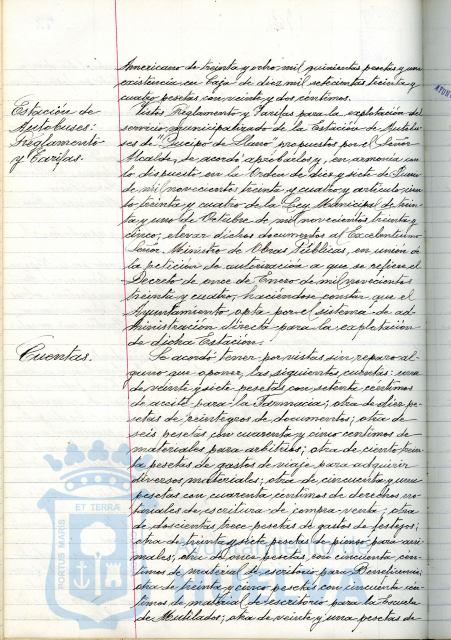 Americano de treinta y ocho mil quinientas pesetas y una
existencia en Caja de diez mil setecientas treinta y
cuatro pesetas con veinte y dos centimos.
Estación de
Autobuses:
Reglamento
y Tarifas.
Vistos Reglamento y Tarifas para la explotación del
servicio municipalizado de la Estación de Autobu-
ses de "Queipo de Llano" propuestos por el Señor
Alcalde, se acordó aprobarlos y, en armonía con
lo dispuesto en la Orden de diez y siete de
de mil novecientos treinta y cuatro y artículo cien-
to treinta y cuatro de la Ley Municipal de trein-
ta y uno de Octubre de mil novecientos treinta y
cinco, elevar dichos documentos al Excelentísimo
Señor Ministro de Obras Públicas, en unión de
la petición de autorización a que se refiere el
Decreto de once de Enero de mil novecientos
treinta y cuatro, haciéndose constar que el
Ayuntamiento opta por el sistema de ad-
ministración directa para la explotación
de dicha Estación.
Cuentas.
Se acordó tener por vistas sin reparo al-
guno que oponer, las siguientes cuentas: una
de veinte y siete pesetas con setenta centimos
de aceite para la Farmacia; otra de diez pe-
setas de reintegros de documentos; otra de
seis pesetas con cuarenta y cinco centimos de
materiales para arbitrios; otra de ciento trein-
ta pesetas de gastos de viaje para adquirir
diversos materiales; otra de cincuenta y una
pesetas con cuarenta centimos de derechos no-
tariales de escritura de compra-venta; otra
de doscientas trece pesetas de gastos de festejos;
otra de treinta y siete pesetas de pienso para ani-
males; otra de once pesetas con cincuenta cen-
timos de material de escritorio para Beneficencia;
otra de treinta y cinco pesetas con cincuenta cen-
timos de material de escritorio para la Escuela
de Mutilados; otra de veinte y una pesetas de
PORTUS MARIS ET TERRAE